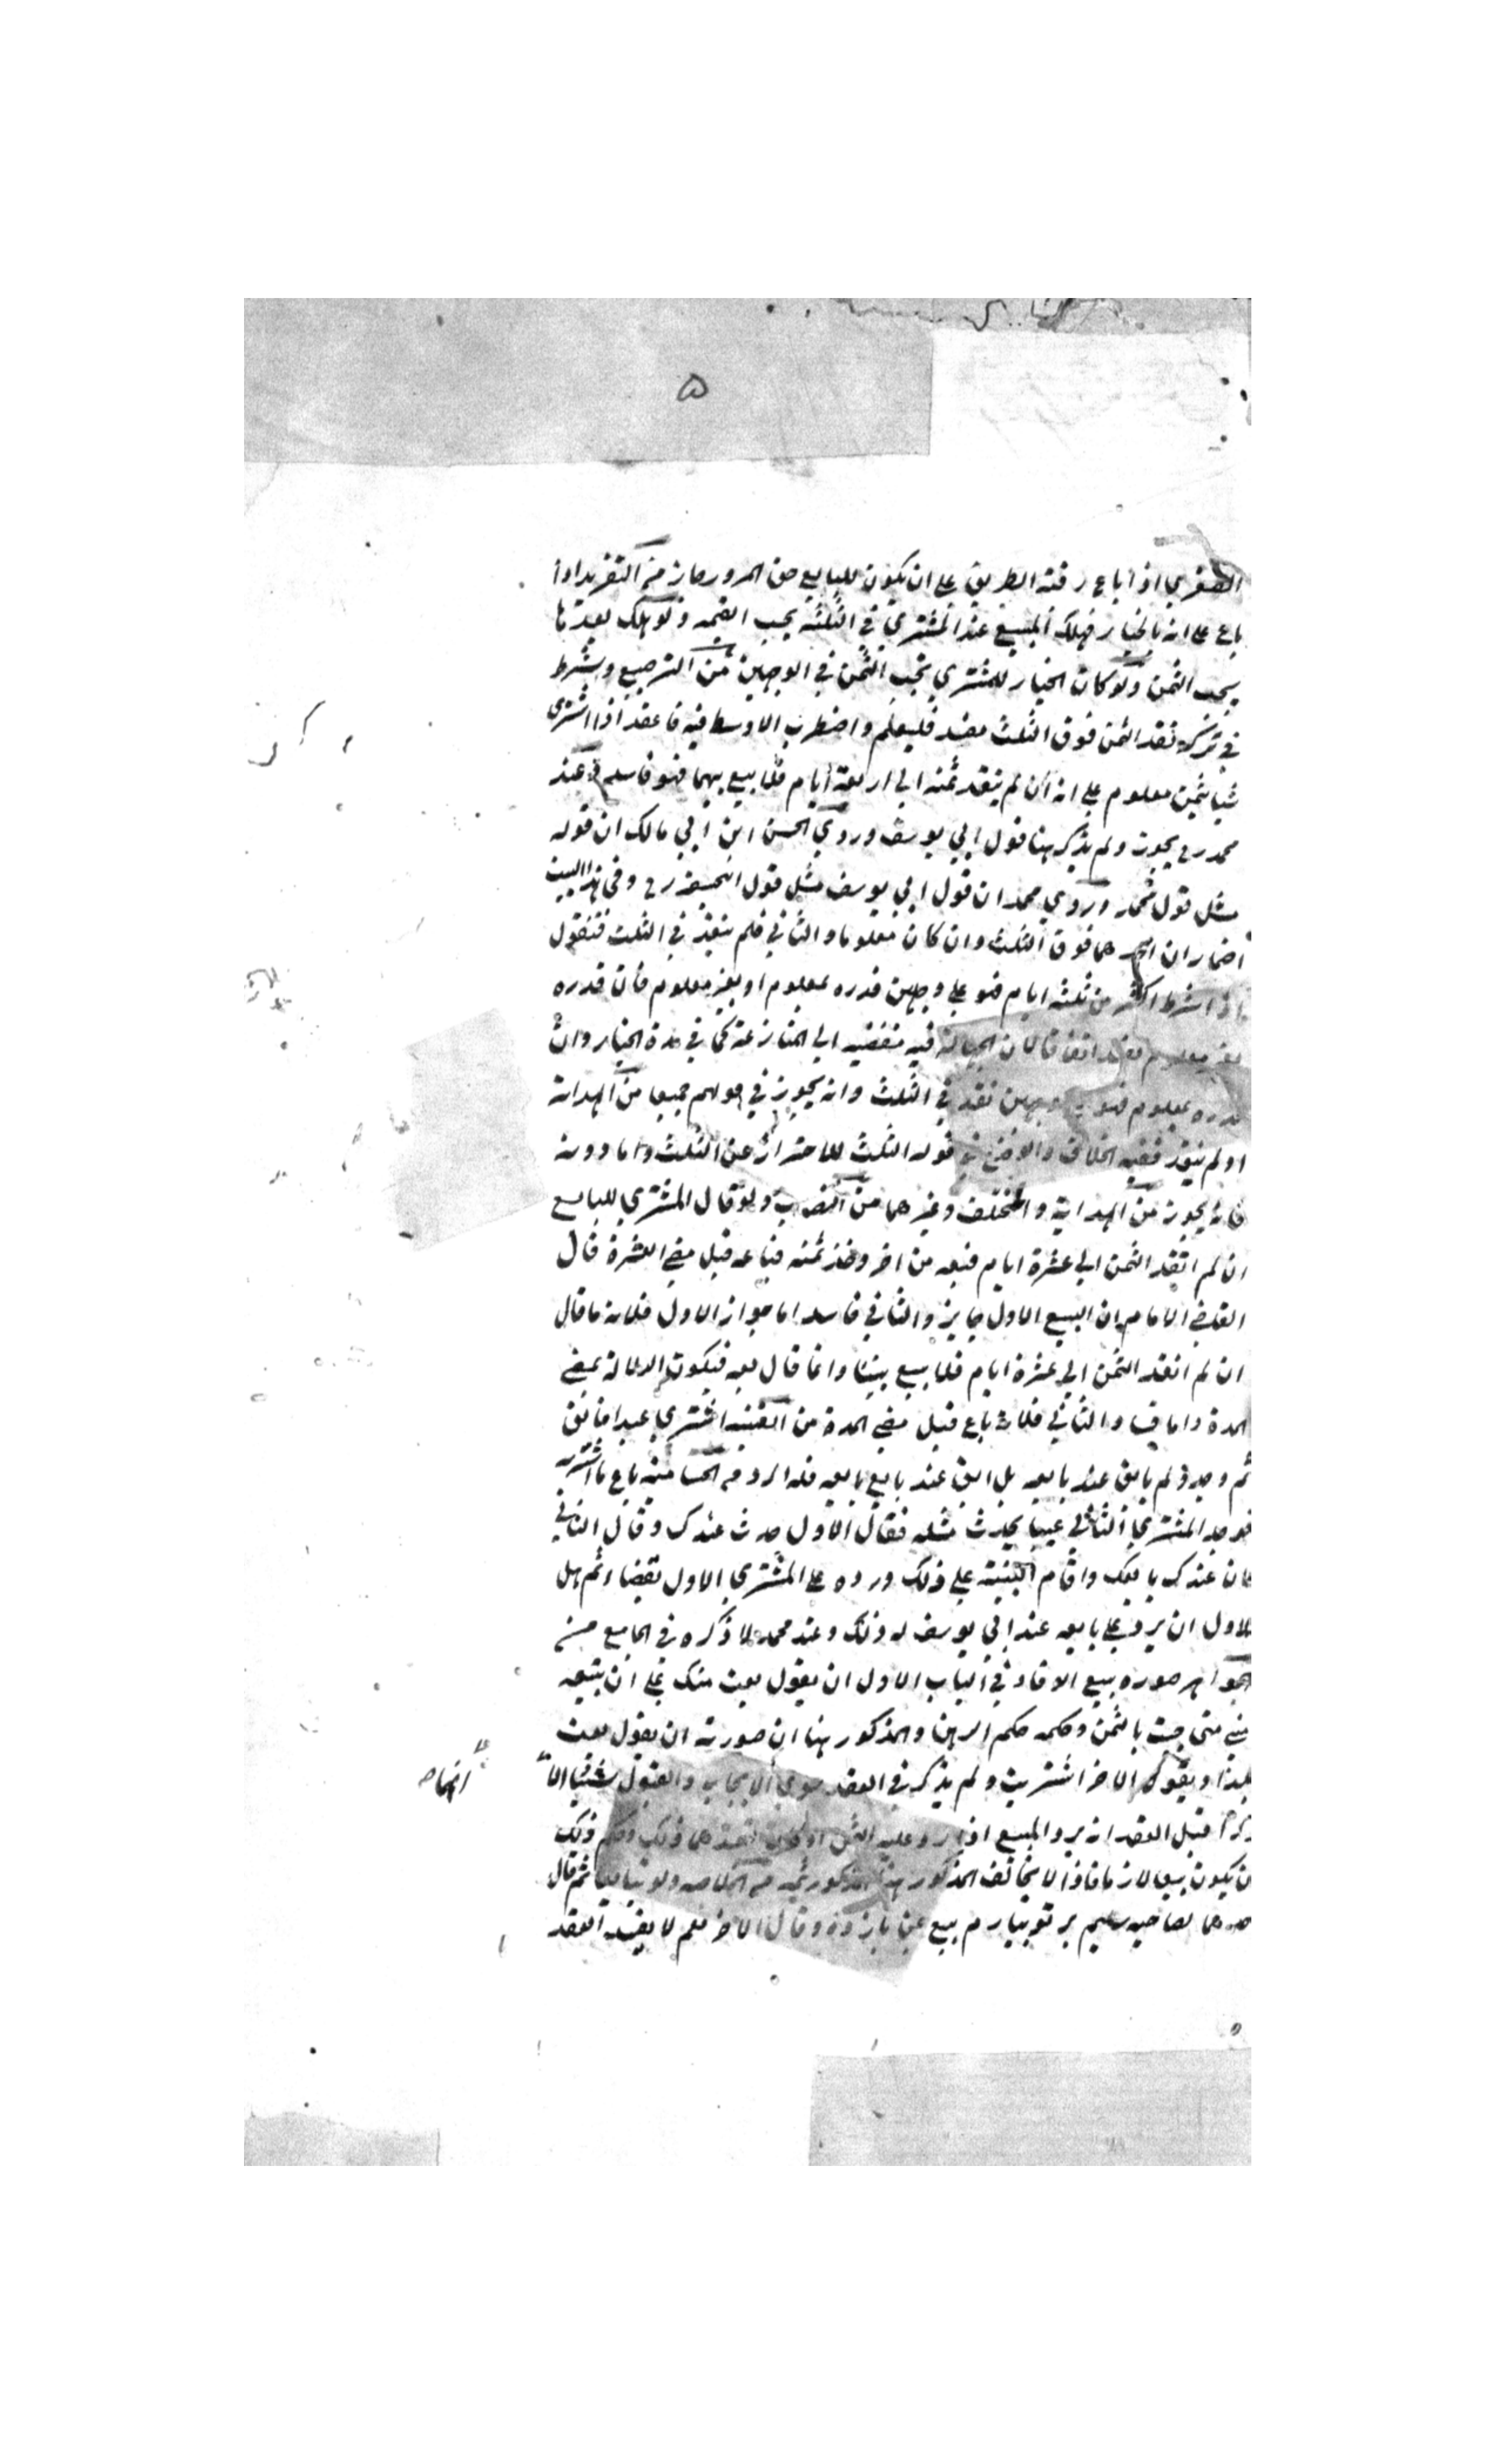 ۵
الصغري اذا باع رقبة الطريق علي ان يكون للبايع حق المرور جاز من التفريد اذا
باع علي انه بالخيار فهلك المبيع عند المشتري في الثلثة يجب القيمه ولو هلك بعدها
يجب الثمن ولو كان الخيار للمشتري يجب الثمن في الوجهين من الترصيع وشرط
في ترك نقد الثمن فوق الثلث مفسد فليعلم واضطرب الاوسط فيه فاعقد اذا اشترى
شيا بثمن معلوم علي انه ان لم ينقد ثمنه الي اربعة ايام فلا بيع بينهما فهو فاسد عند
محمد رح يجوز ولم يذكر هنا قول ابي يوسف وروي الحسن ابن ابي مالك ان قوله
مثل قول محمد وروي محمد ان قول ابي يوسف مثل قول ابحنيفه رح وفي هذا البيت
اضمار ان فوق الثلث وان كان معلوما والثاني فلم ينقد في الثلث فنقول
اذا شرط اكثر من ثلثه ايام فهو علي وجهين قدره بمعلوم او بغير معلوم فان قدره
بغير معلوم يفسد اتفاقا لان الجهالة فيه مفضيه الي المنازعة كما في مدة الخيار وان
قدره بمعلوم فهو وجهين نقد في الثلث وانه يجوز في قولهم جميعا من الهداية
او لم ينقد ففيه الخلاف والوضع في قوله الثلث للاحتراز عن الثلث واما دونه
فانه يجوز من الهداية والمختلف وغيرهما من النصاب ولو قال المشتري للبايع
ان لم انقد الثمن الي عشرة ايام فبعه من اخر وخذ ثمنه فباعه قبل مضي العشرة قال
القاضي الامام ان البيع الاول جايز والثاني فاسد اما جواز الاول فلانه ما قال
ان لم انقد الثمن الي عشرة ايام فلا بيع بيننا وانما قال بعه فيكون الدلالة بمضي
المدة واما فساد الثاني فلانه باع قبل مضي المدة من القنيه اشتري عبدا فابق
ثم وجده لم يابق عند بايعه بل ابق عند بايع بايعه فله الرد من الحساميه باع ما اشتريه
فوجد المشتري الثاني عيبا يحدث مثله فقال الاول حدث عندك وقال الثاني
كان عندك بايعك واقام البينة علي ذلك ورده علي المشتري الاول بقضاء ثم هل
للاول ان يرد علي بايعه عند ابي يوسف له ذلك وعند محمد لا ذكره في الجامع من
الجواهر صوره بيع الوفا في الباب الاول ان يقول بعت منك علي ان تبيعه
مني متى جئت بالثمن وحكمه حكم الرهن والمذكور هنا ان صورته ان يقول بعت
بكذا ويقول الاخر اشتريت ولم يذكر في العقد سوي الايجاب والقبول شيئا الا
انهما
ذكرا قبل العقد انه يرد المبيع اذا رد عليه الثمن ذلك وحكم ذلك
ان يكون بيعا لازما فاذا لا يخالف المذكور هنا المذكور ثمه من الخلاصه ولو تبايعا ثم قال
احدهما لصاحبه بيع وقال الاخر نعم لا يفسد العقد